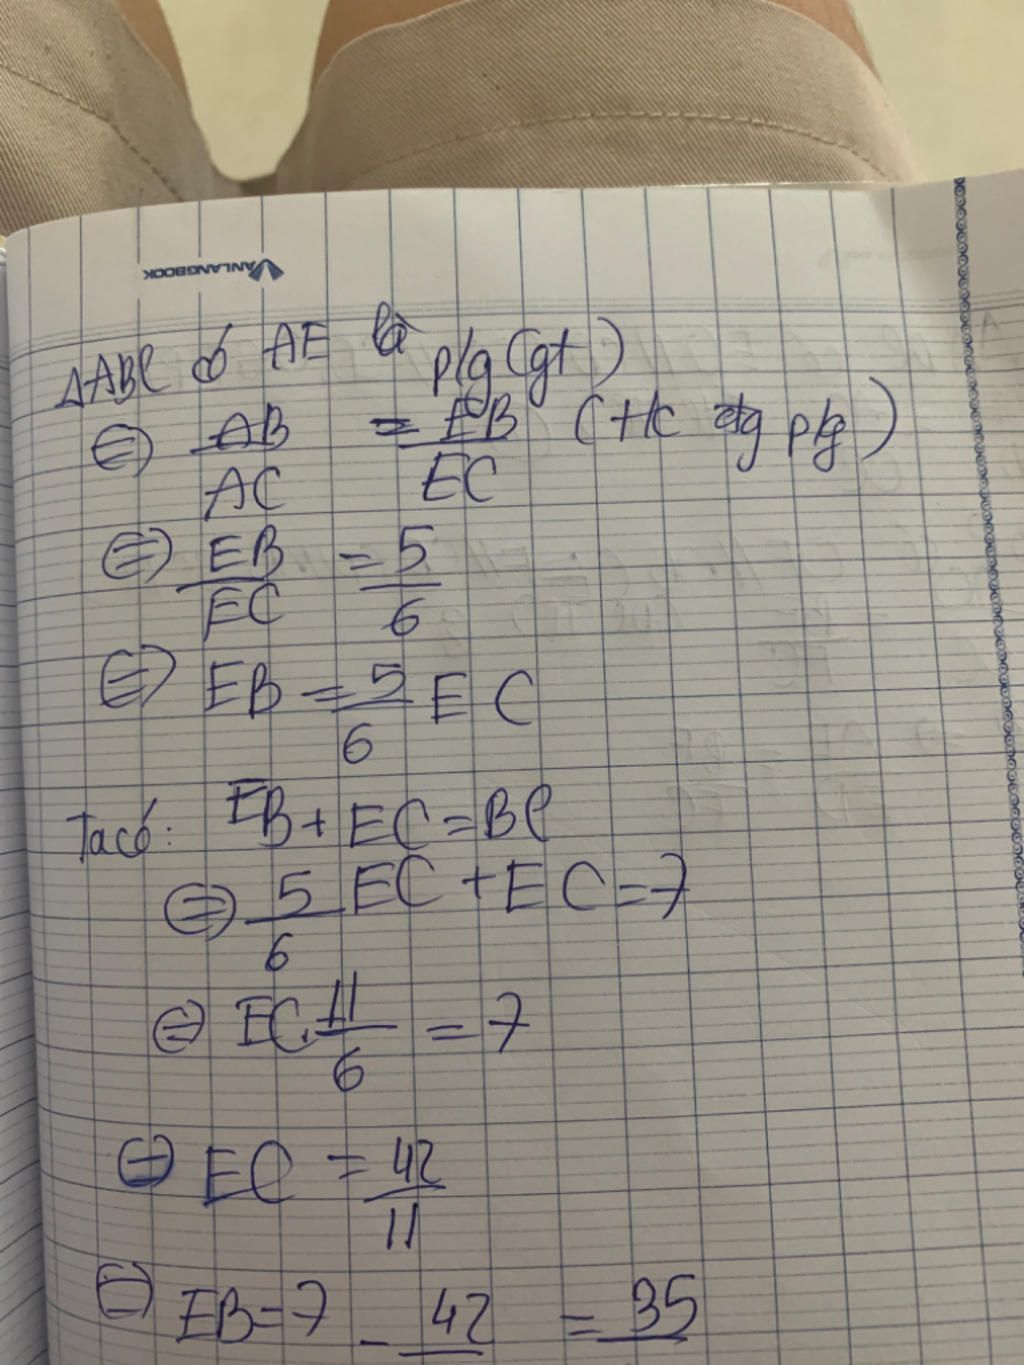 VANLANGBOOK
ΔABC có AE là p/g (gt)
⇔ AB/AC = EB/EC (t/c đg p/g)
⇔ EB/EC = 5/6
⇔ EB = 5/6 EC
Ta có: EB + EC = BC
⇔ 5/6 EC + EC = 7
⇔ EC . 11/6 = 7
⇔ EC = 42/11
⇔ EB = 7 - 42 = 35